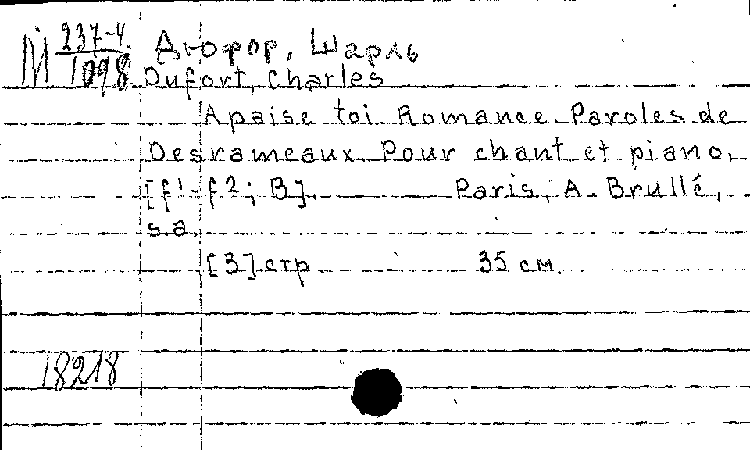 М 237-4 Дюфор, Шарль
1098 Dufort, Charles
Apaise toi Romance. Paroles de
Desrameaux. Pour chant et piano.
[f1-f2; B]. Paris, A. Brullé,
s.a.
[3] стр. 35 см.
18218